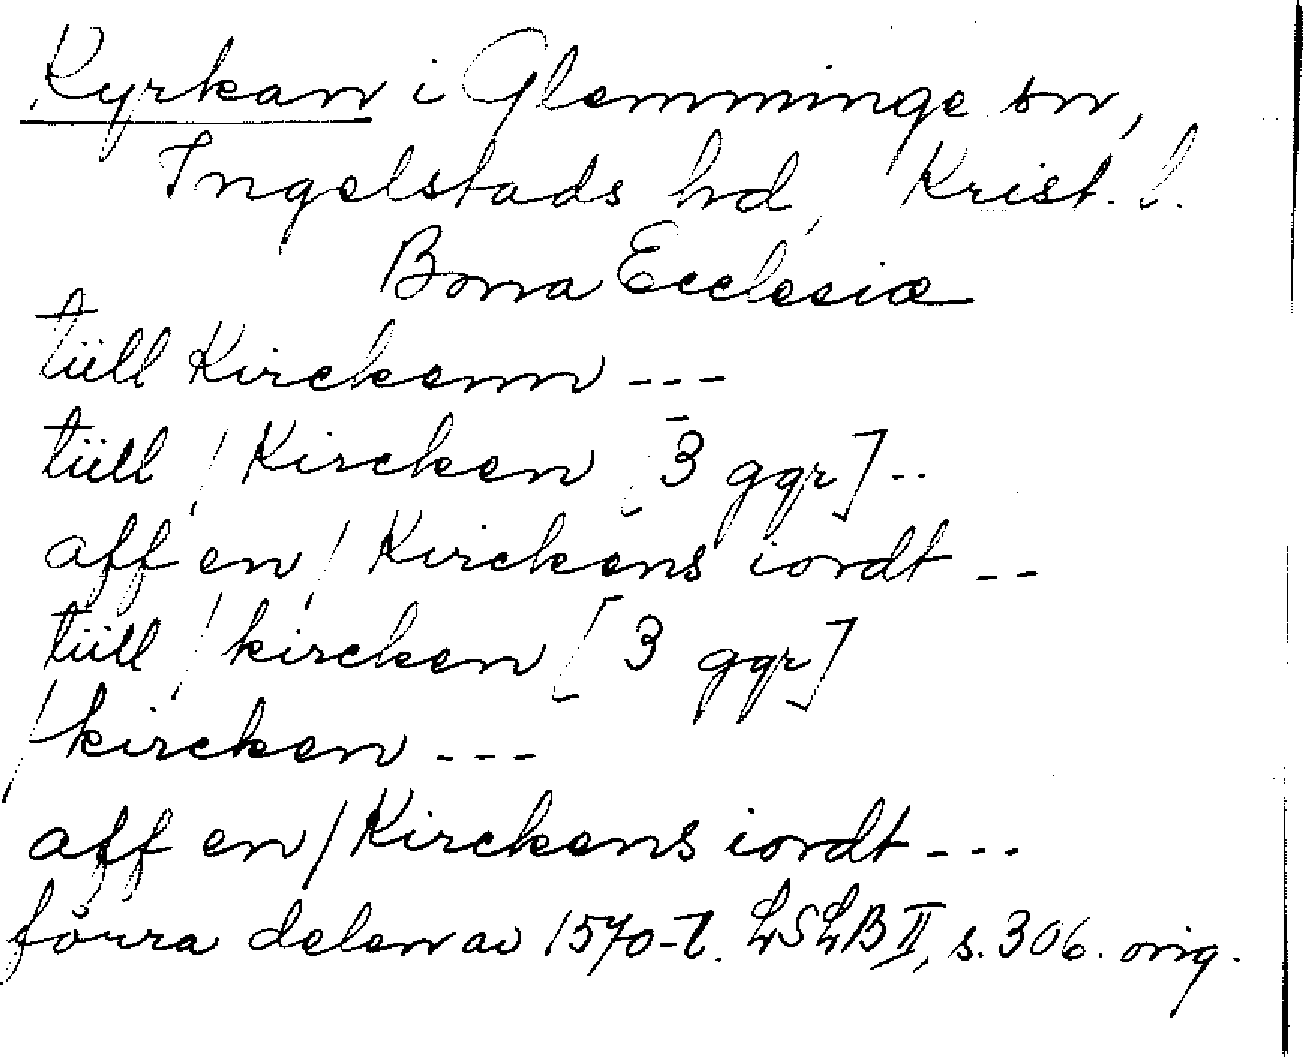 Kyrkan i Glemminge sn,
Ingelstads hd, Krist. l.
Bona Ecclesiæ
tüll Kirckenn ---
tüll / Kircken [3 ggr] --
aff en / Kirckens iordt --
tüll / kircken [3 ggr]
/ kircken ---
aff en / Kirckens iordt ---
förra delen av 1570-t. LSLB II, s. 306. orig.